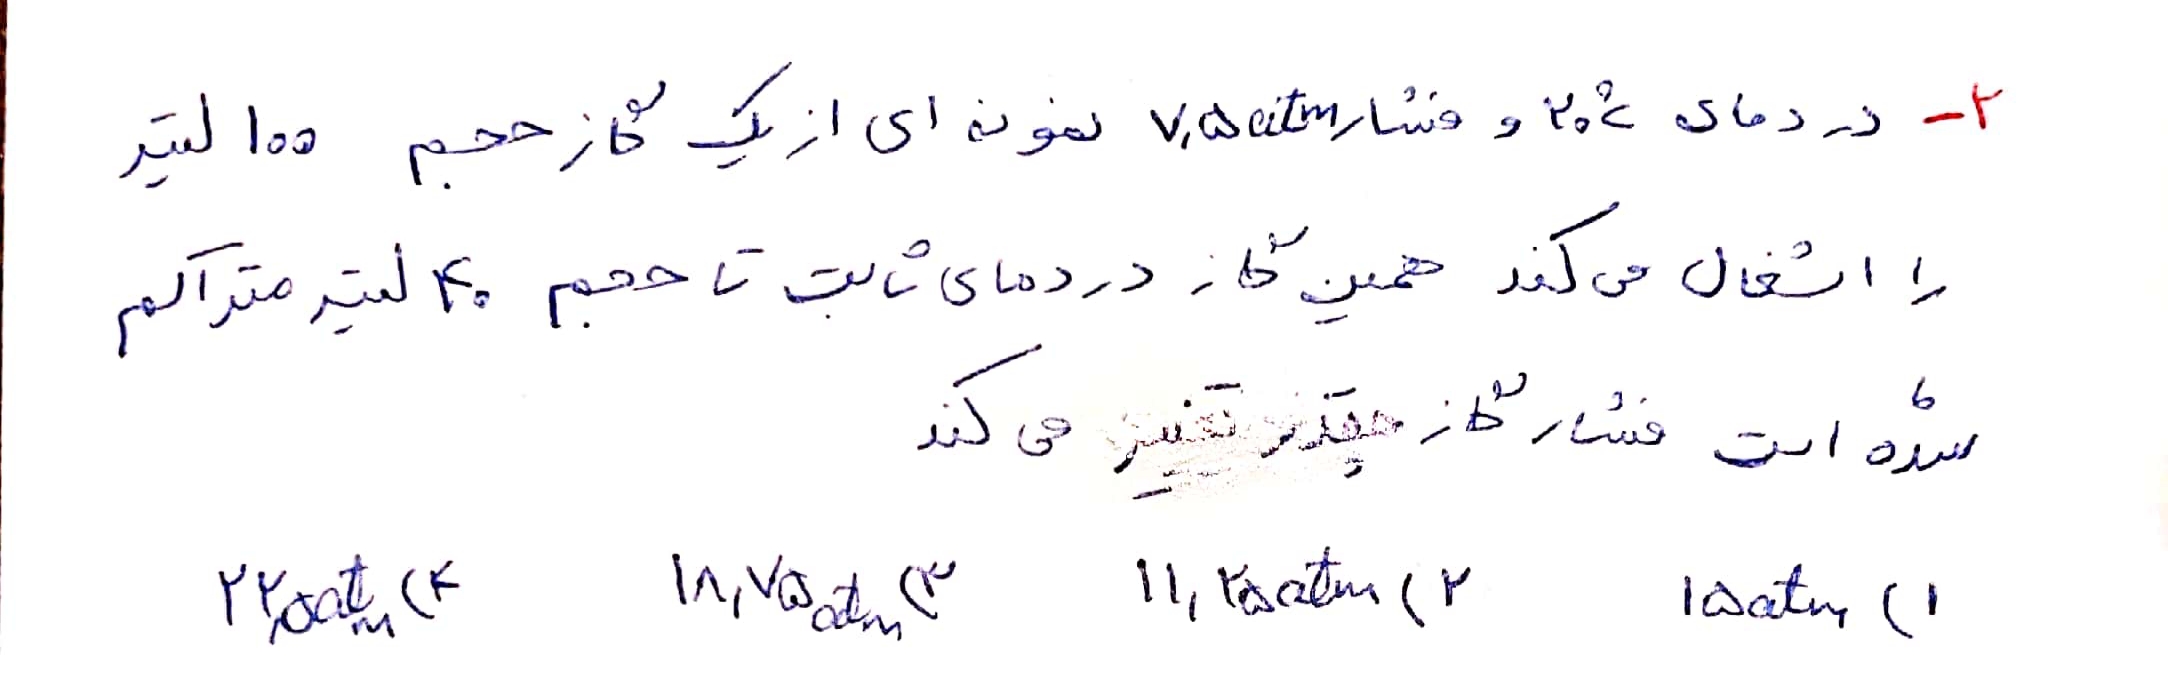 ۲- در دمای ۲۰°C و فشار ۷٫۵atm نمونه ای از یک گاز حجم ۱۰۰ لیتر
را اشغال می کند همین گاز در دمای ثابت تا حجم ۴۰ لیتر متراکم
شده است فشار گاز چقدر تغییر می کند
۱) ۱۵atm ۲) ۱۱٫۲۵atm ۳) ۱۸٫۷۵atm ۴) ۲۲٫۵atm